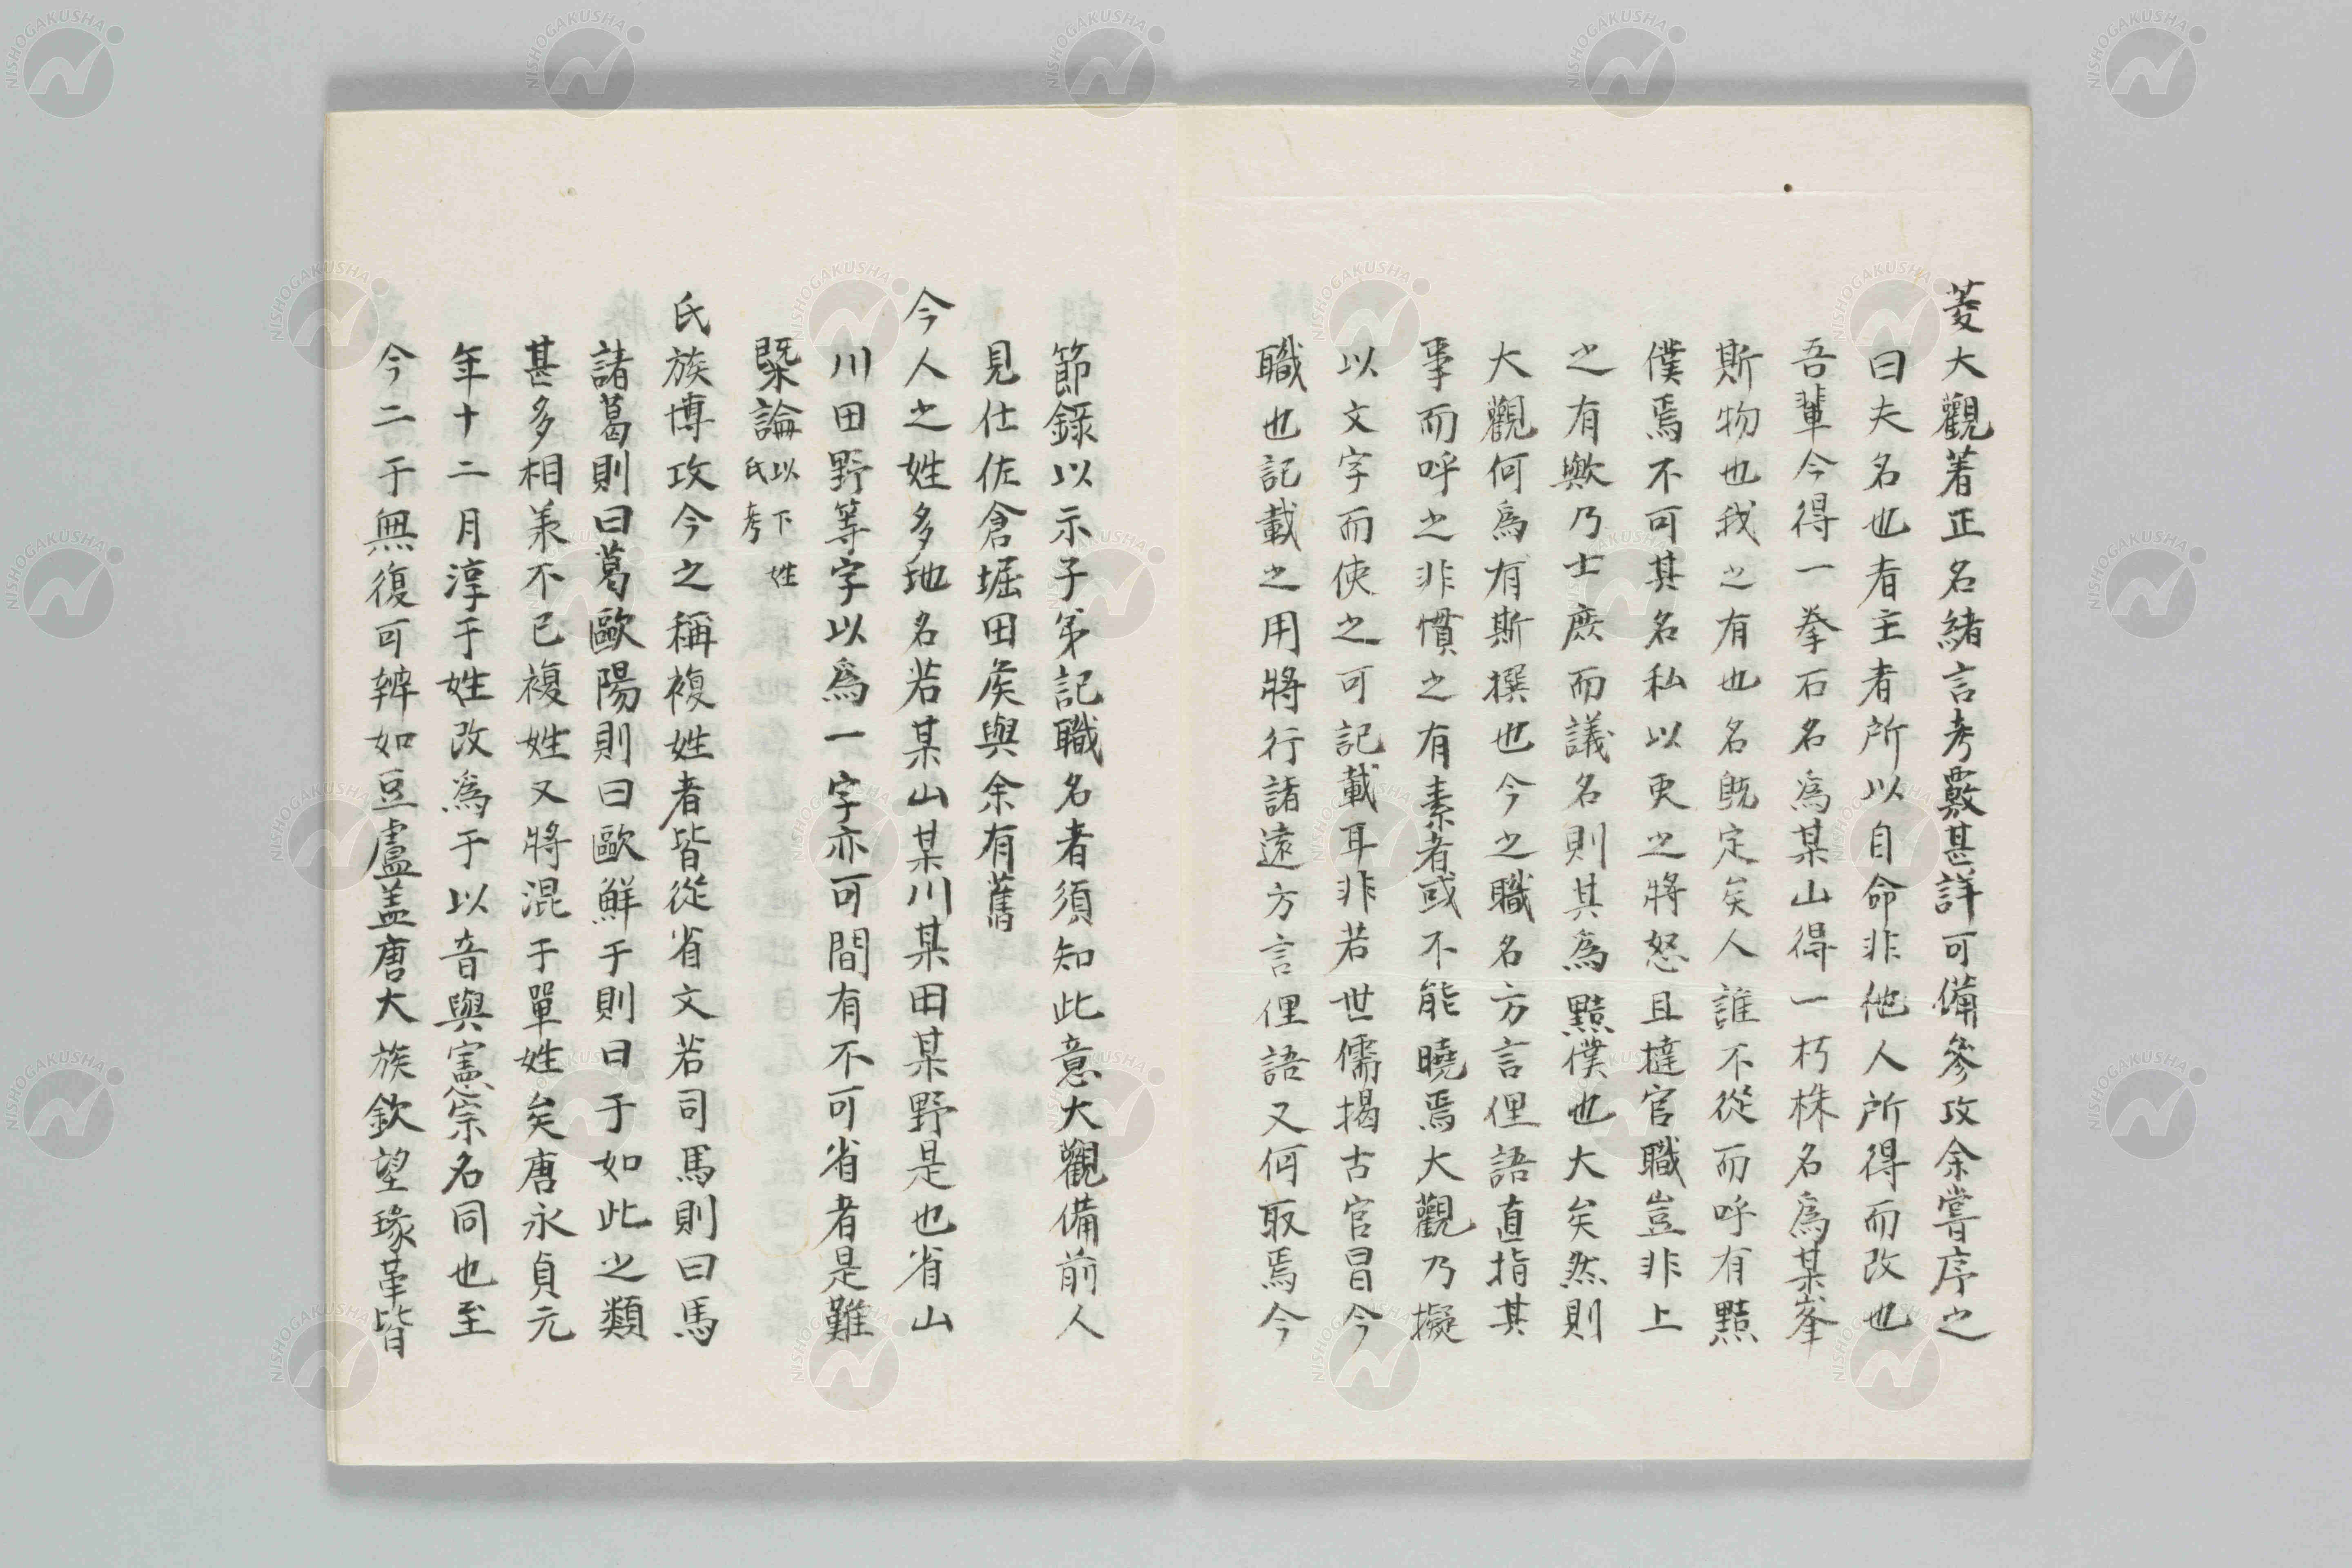 菱大觀著正名緒言考覈甚詳可備參攷余嘗序之
曰夫名也者主者所以自命非他人所得而改也
吾輩今得一拳石名爲某山得一朽株名爲某峯
斯物也我之有也名既定矣人誰不從而呼有黠
僕焉不可其名私以更之將怒且撻官職豈非上
之有歟乃士庶而議名則其爲黠僕也大矣然則
大觀何爲有斯撰也今之職名方言俚語直指其
事而呼之非慣之有素者或不能曉焉大觀乃擬
以文字而使之可記載耳非若世儒揭古官冒今
職也記載之用將行諸遠方言俚語又何取焉今
節錄以示子弟記職名者須知此意大觀備前人
見仕佐倉堀田矦與余有舊
今人之姓多地名若某山某川某田某野是也省山
川田野等字以爲一字亦可間有不可省者是難
槩論以下姓氏考
氏族博攷今之稱複姓者皆從省文若司馬則曰馬
諸葛則曰葛歐陽則曰歐鮮于則曰于如此之類
甚多相承不已複姓又將混于單姓矣唐永貞元
年十二月淳于姓改爲于以音與憲宗名同也至
今二于無復可辨如豆盧盖唐大族欽望瑑革皆
NISHOGAKUSHA